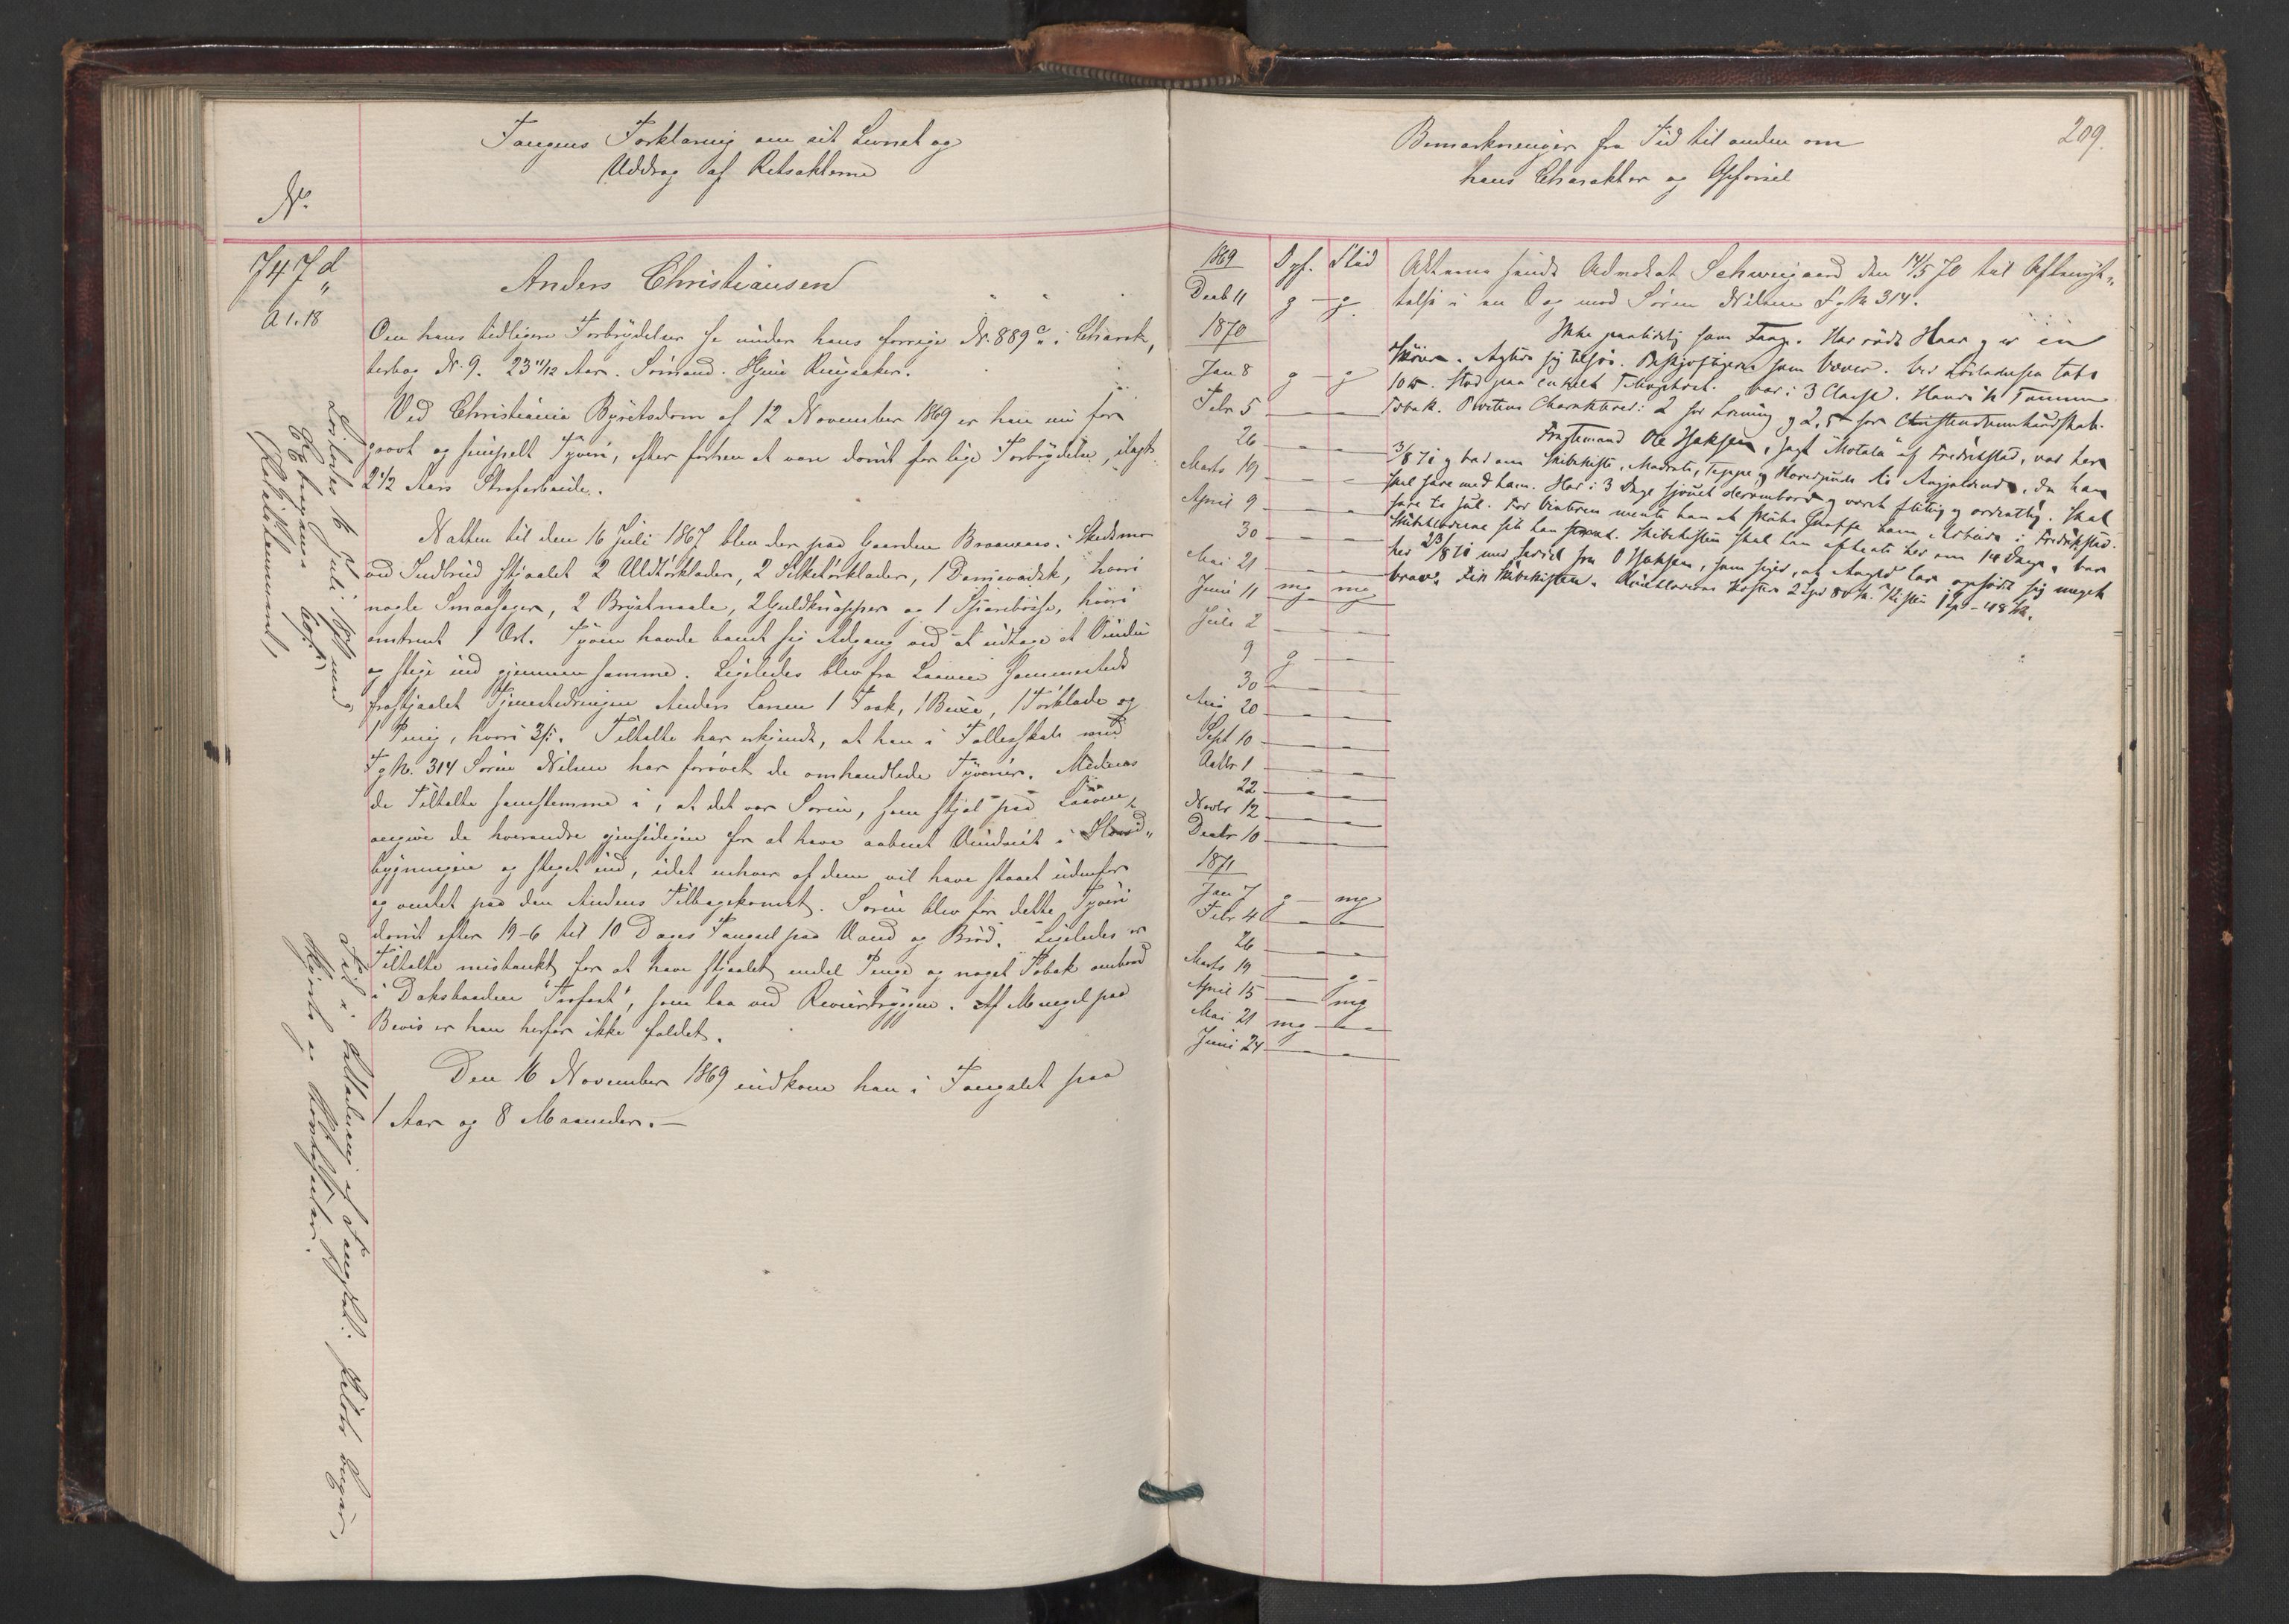 Fangens Forklaring om sit Levnet og
Uddrag af Retsakterne
No.
747 d
a 1.18
Anders Christiansen
Om hans tidligere Forbrydelser se under hans forrige No. 889 c i Charak,
terbog No. 9. 23 11/12 Aar. Sømand. Hjem Ringsaker.
Ved Christiania Byretsdom af 12 November 1869 er han nu for
grovt og simpelt Tyveri, efter forhen at være dømt for lige Forbrydelse, ilagt
2 1/2 Aars Strafarbeide.
Natten til den 16 Juli 1867 blev der paa Gaarden Braanaas i Skedsmo
ved Indbrud stjaalet 2 Uldtørklæder, 2 Silketørklæder, 1 Damevadsk, hvori
nogle Smaasager, 2 Brystnaale, 2 Guldknapper og 1 Sparebøsse, hvori
omtrent 1 Ort. Tyven havde banet sig Adgang ved at udtage et Vindu
og stige ind gjennem samme. Ligeledes blev fra Laaven sammesteds
frastjaalet Tjenestedrengen Anders Larsen 1 Frak, 1 Buxe, 1 Tørklæde og
1 Pung, hvori 3 ß. Tiltalte har erkjendt, at han i Fællesskab med
Fg No. 314 Søren Nilsen har forøvet de omhandlede Tyverier. Medens
de Tiltalte samstemme i, at det var Søren, som stjal paa Laaven,
angive de hverandre gjensidigen for at have aabnet Vinduet i
bygningen og steget ind, idet enhver af dem vil have staaet udenfor
og ventet paa den Andens Tilbagekomst. Søren blev for dette Tyveri
dømt efter 19-6 til 10 Dages Fængsel paa Vand og Brød. Ligeledes er
Tiltalte mistænkt for at have stjaalet endel Penge og noget Tobak ombord
i Dæksbaaden "Forsøg", som laa ved Revierbryggen. Af Mangel paa
Bevis er han herfor ikke fældet.
Den 16 November 1869 indkom han i Fængslet paa
1 Aar og 8 Maaneder.
Løslodes 16 Juli 1871 med
Fik i Udladning af Fængslet:
Bemærkninger fra Tid til anden om
hans Charakter og Opførsel
209.
1869 Opf. Flid
Decb 11 g - g
1870
Jan 8 g - g
Febr 5 - -
26 - -
Marts 19 - -
April 9 - -
30 - -
Mai 21 - -
Juni 11 mg - mg
Juli 2 - -
9 g -
30 - -
Aug 20 - -
Sept 10 - -
Octbr 1 - -
22 - -
Novbr 12 - -
Decbr 10 - -
1871
Jan 7 g - mg
Febr 4 - -
26 - -
Marts 19 - g -
April 15 - mg
Mai 21 mg - -
Juni 24 - -
Akterne sendt Advokat Schweigaard den 14/5 70 til Afbenyt,
telse i en Sag mod Søren Nilsen Fg No 314.
Ikke paalidelig som Fange. Har rødt Haar og er en
Skøier. Agter sig tilsøs. Beskjæftiges som Væver. Ved Løsladelsen tabt
10 ℔. Stod paa enkelt Tillægskost. Var i 3 Classe.
Tobak. Præstens Charakterer: 2 for Læsning og 2,5 for Christendomskundskab.
Fragtemand Ole Isaksen, Jagt "Motala" af Fredrikstad, var her
3/8 71 og bad om Skibskiste, Madrats, Teppe og Hovedpude til Angjældende, da han
skal fare med ham. Har i 3 Dage sjouet derombord og været flittig og ordentlig. Skal
fare til Jul. For Vinteren mente han at skulle skaffe ham Arbeide i Fredrikstad.
Skibsklæderne fik han strax. Skibskisten skal han afhente her om 14 Dage. Var
her 23/8 71 med Seddel fra O Isaksen, som siger, at Anders har opført sig meget
brav. Fik Skibskisten. Køieklæderne koster 2 Spd 80 ß. Kisten 1 Spd - 48 ß.